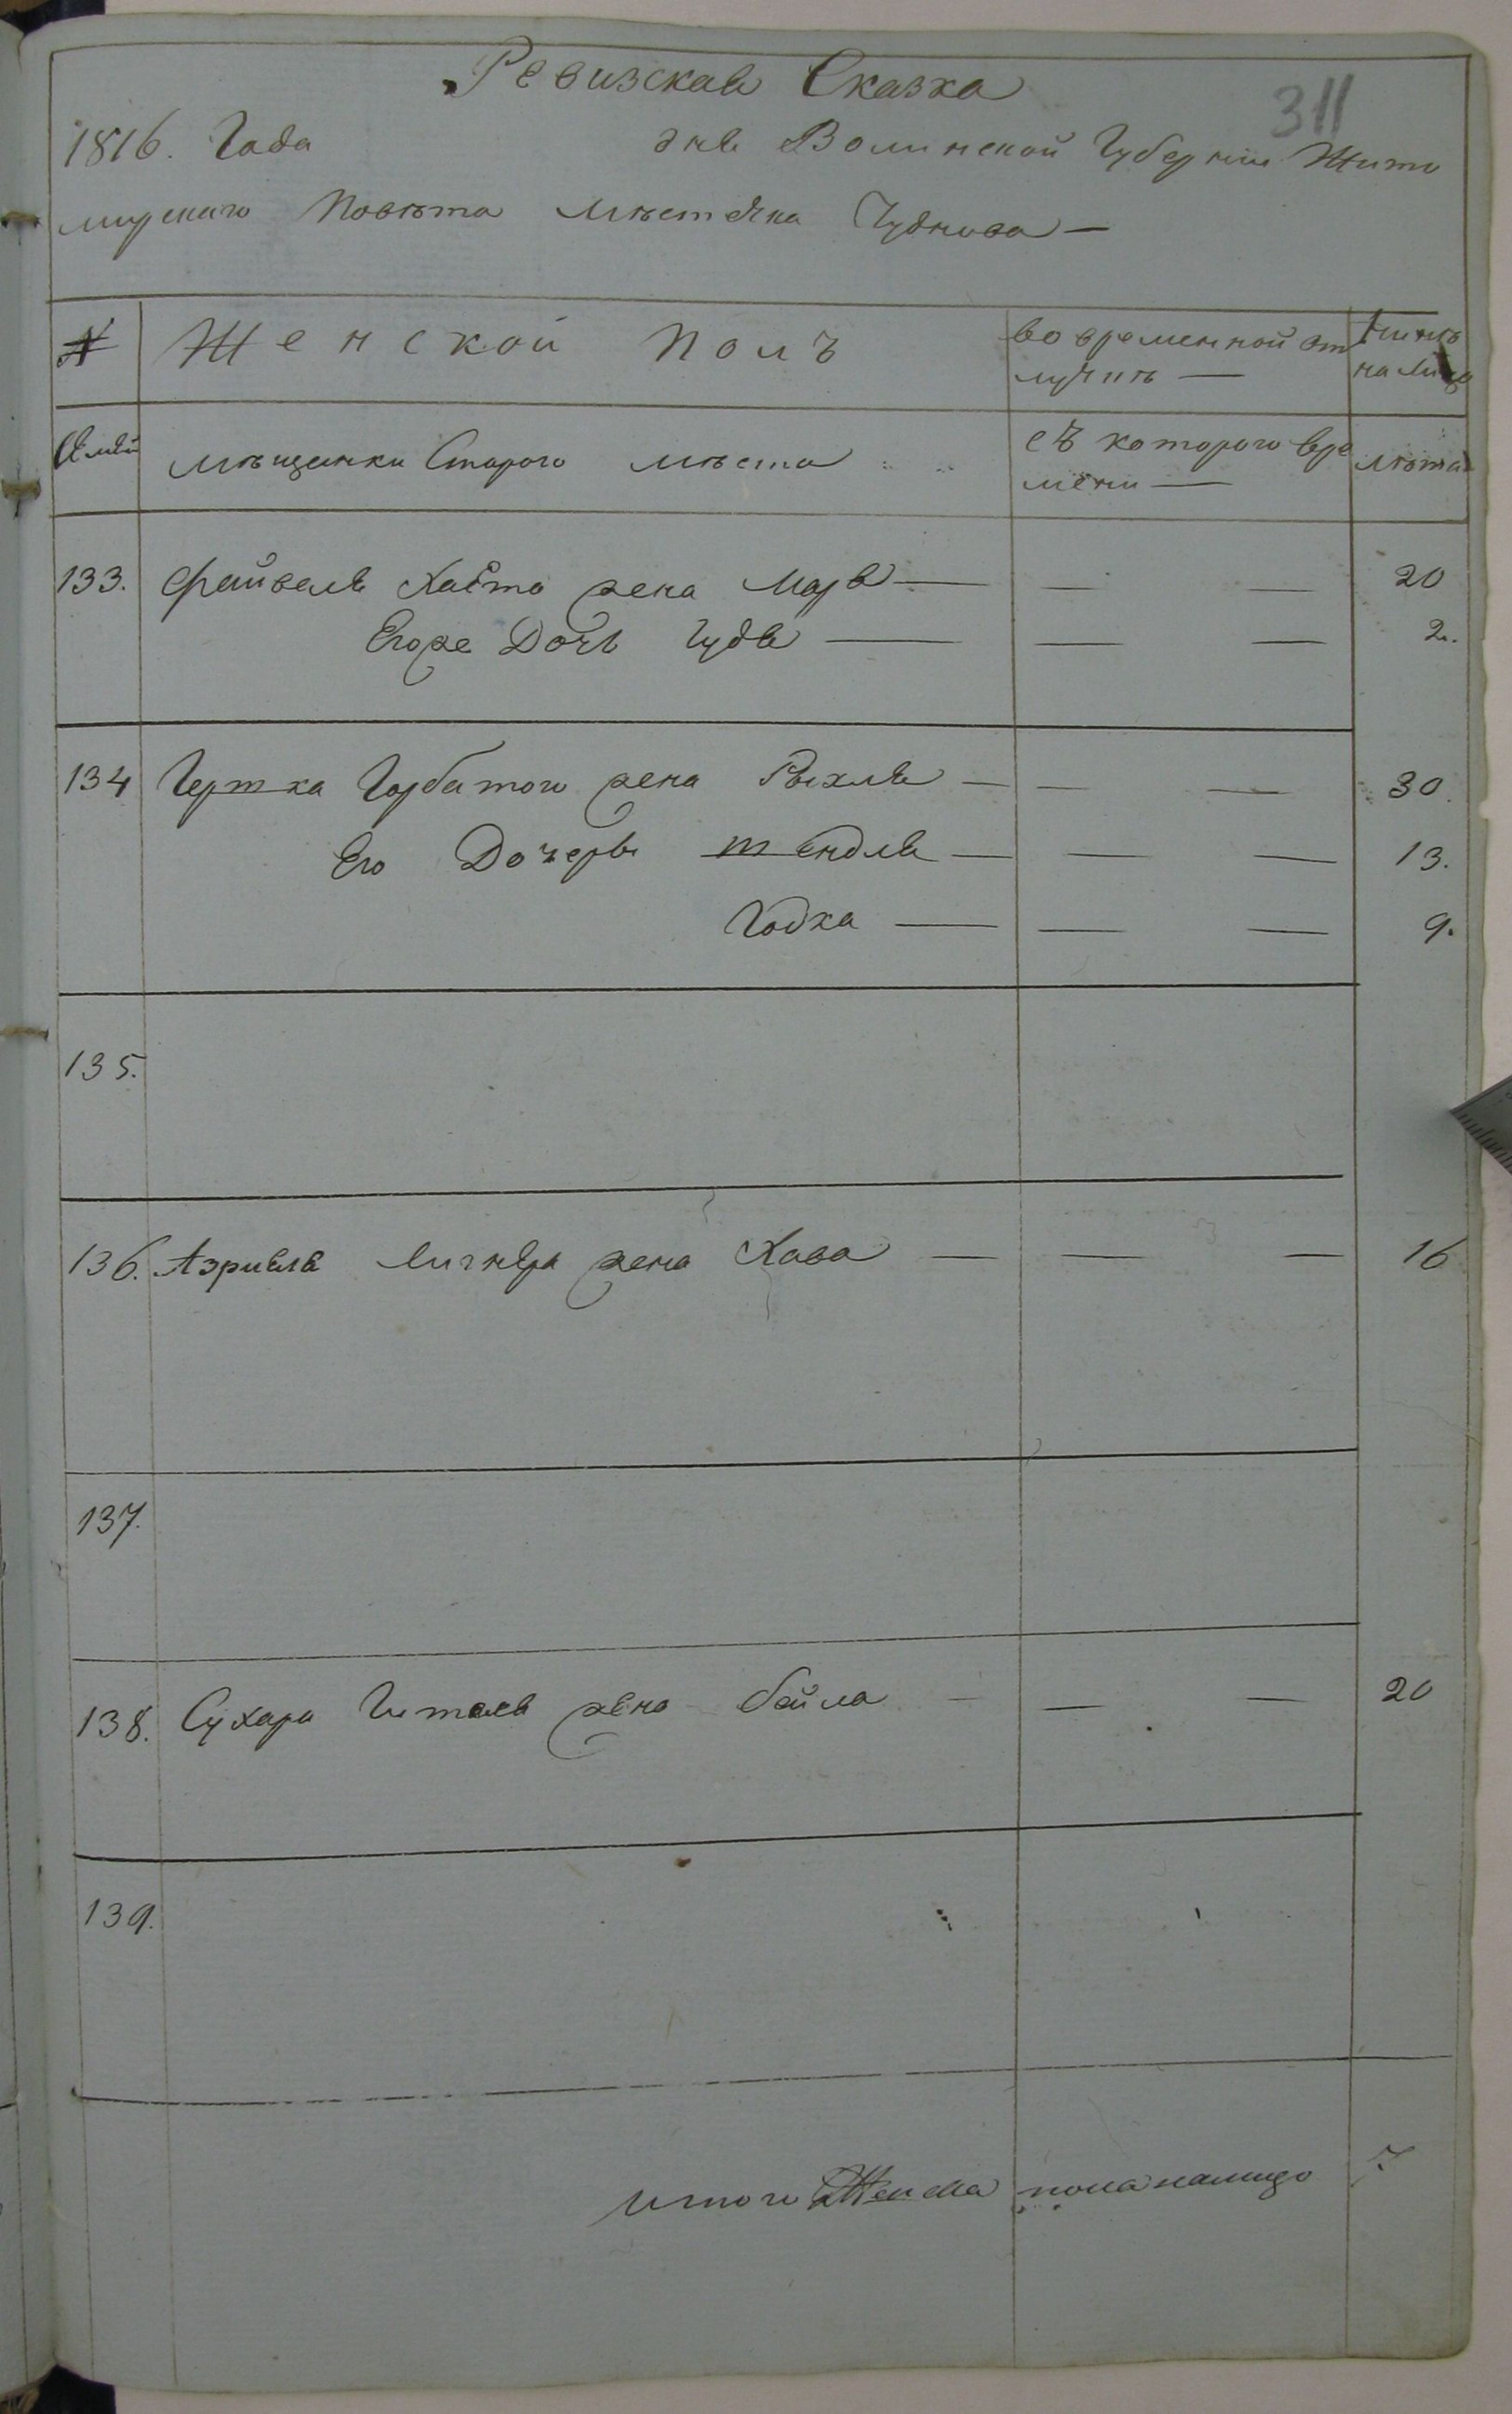 Ревизская Сказка
311
1816. Года дня Волинской Губернии Жито
мирскаго Повѣта Мѣстечка Чуднова —
№ Женской Полъ во временной от
лучкѣ — Нинѣ
на лицо
Семей мѣщанки Старого мѣста съ которого вре
мени — лѣта
133. Файвеля жена Мася — — — 20
Егоже Дочь Гудя — — — 2.
134 Гершка Горбатого жена Рыхля — — — 30.
Его Дочеры Тендля — — — 13.
Годка — — — 9.
135.
136. Азриеля жена Хава — — — 16
137.
138. Сухара жена бейла — — — 20
139.
Итого Женска пола налицо 7